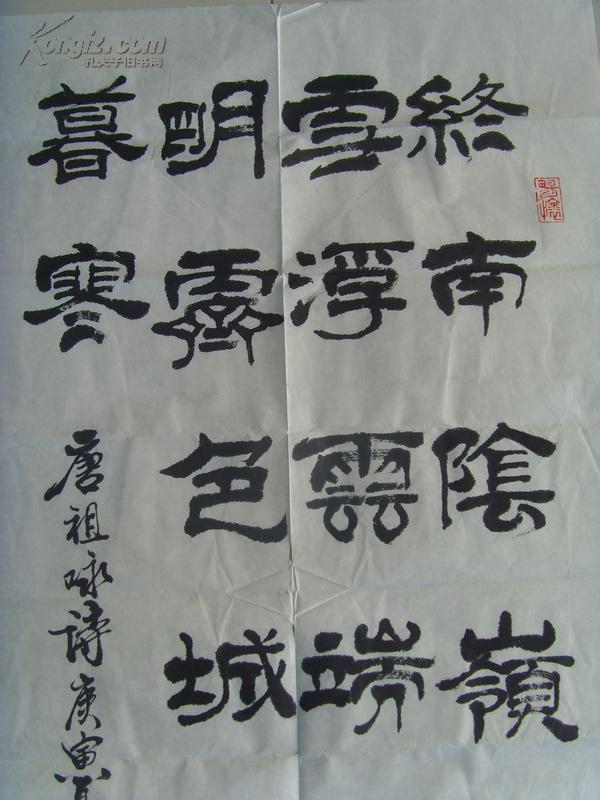 終南陰嶺
雪浮雲端
明霽色城
暮寒
唐祖咏詩庚寅
Kongfz.com
孔夫子旧书网